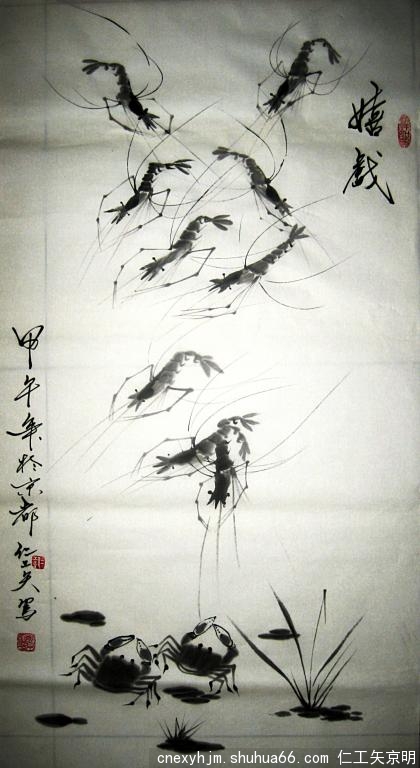 嬉戲
甲午年於京都
仁工矢写
cnexyhjm.shuhua66.com 仁工矢京明